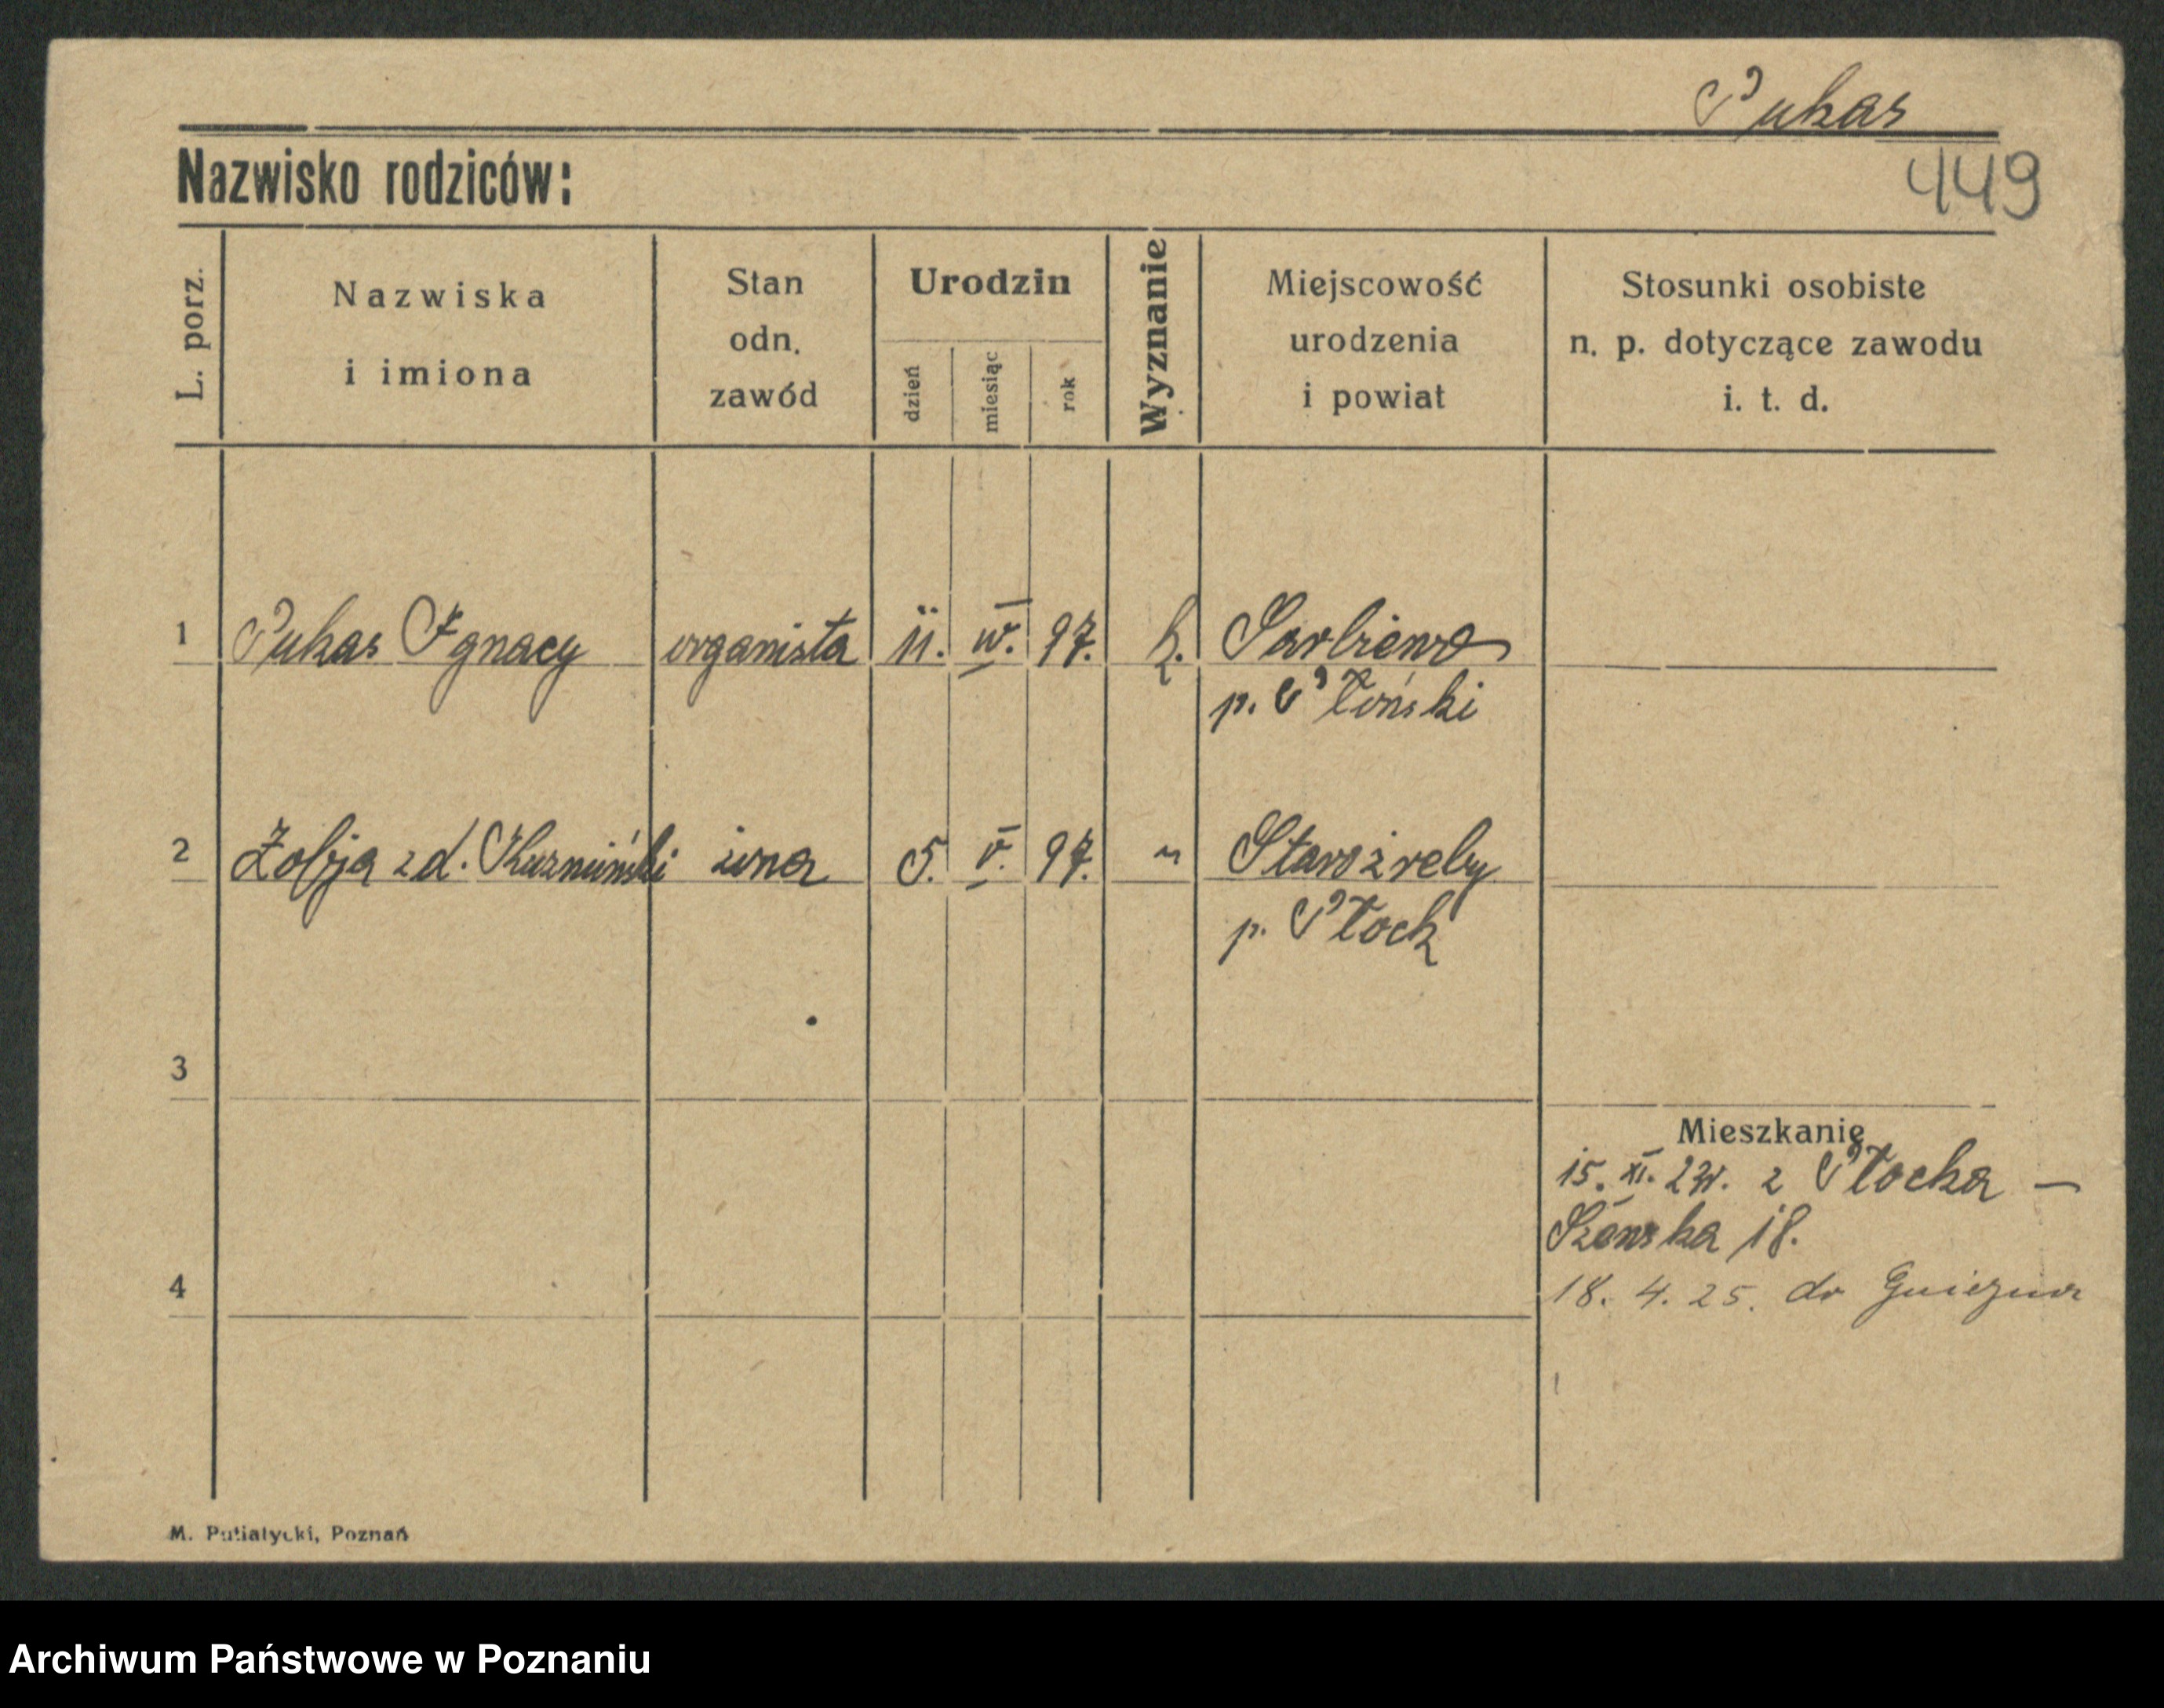 Pukas
Nazwisko rodziców:
449
L. porz.
Nazwiska
i imiona
Stan
odn.
zawód
Urodzin
dzień
miesiąc
rok
Wyznanie
Miejscowość
urodzenia
i powiat
Stosunki osobiste
n. p. dotyczące zawodu
i. t. d.
1 Pukas Ignacy organista 11. IV. 97. k. Sarbiewo
p. Płoński
2 zd. żona 5. V. 97. " Staroźreby
p. Płock
3
Mieszkanie
15. XI. z Płocka —
18.
4
18. 4. 25. do Gniezna
M. Putiatycki, Poznań
Archiwum Państwowe w Poznaniu